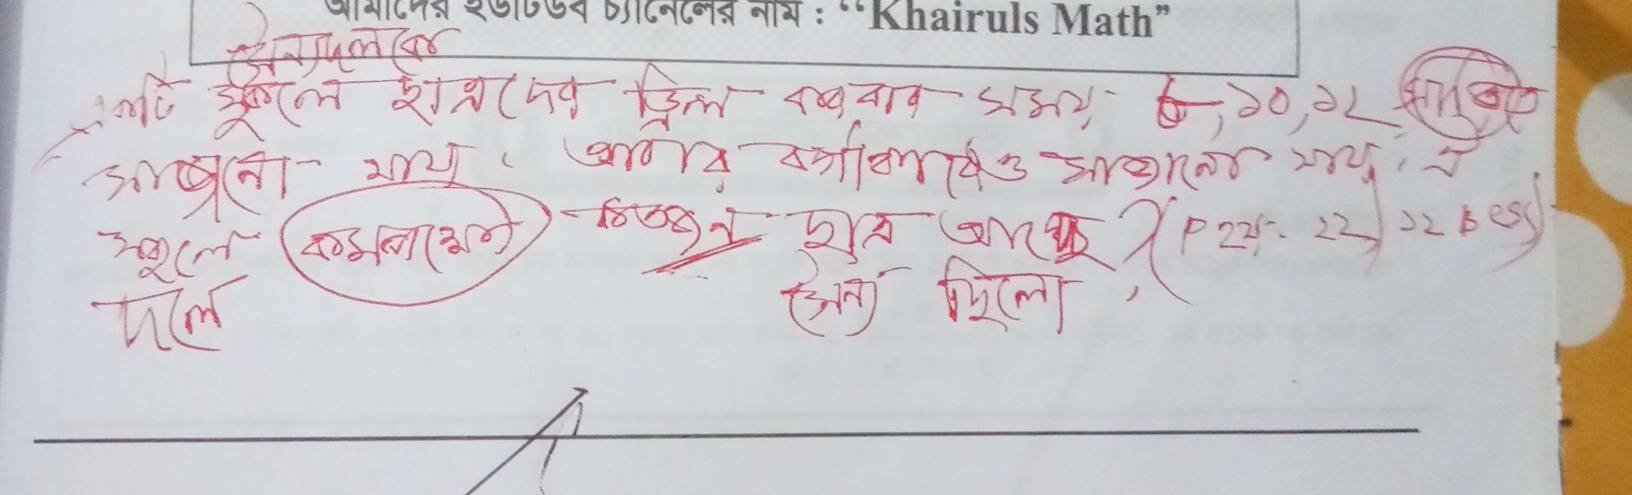 আমাদের ইউটিউব চ্যানেলের নাম : “Khairuls Math”
সৈন্যদলকে
স্কুলে ছাত্রদের ড্রিল করবার সময়, ৮, ১০, ১২
সাজানো যায়। আবার বর্গাকারেও সাজানো যায়। ঐ
স্কুলে কমপক্ষে কতজন ছাত্র আছে? 22 ১২
দলে সৈন্য ছিলো